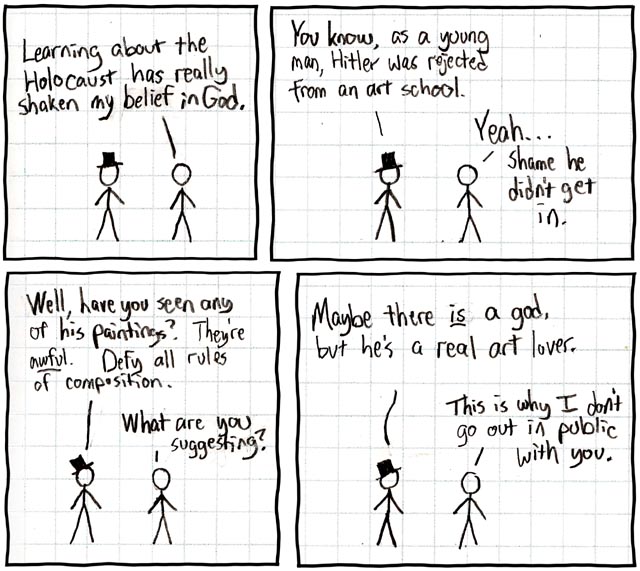 Learning about the
Holocaust has really
shaken my belief in God.
You know, as a young
man, Hitler was rejected
from an art school.
Yeah...
Shame he
didn't get
in.
Well, have you seen any
of his paintings? They're
awful. Defy all rules
of composition.
What are you
suggesting?
Maybe there is a god,
but he's a real art lover.
This is why I don't
go out in public
with you.